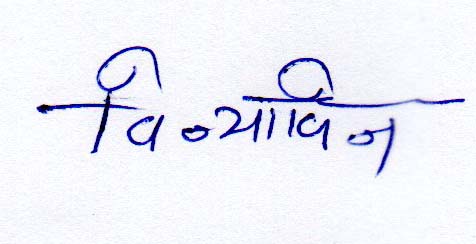 विन्याविन